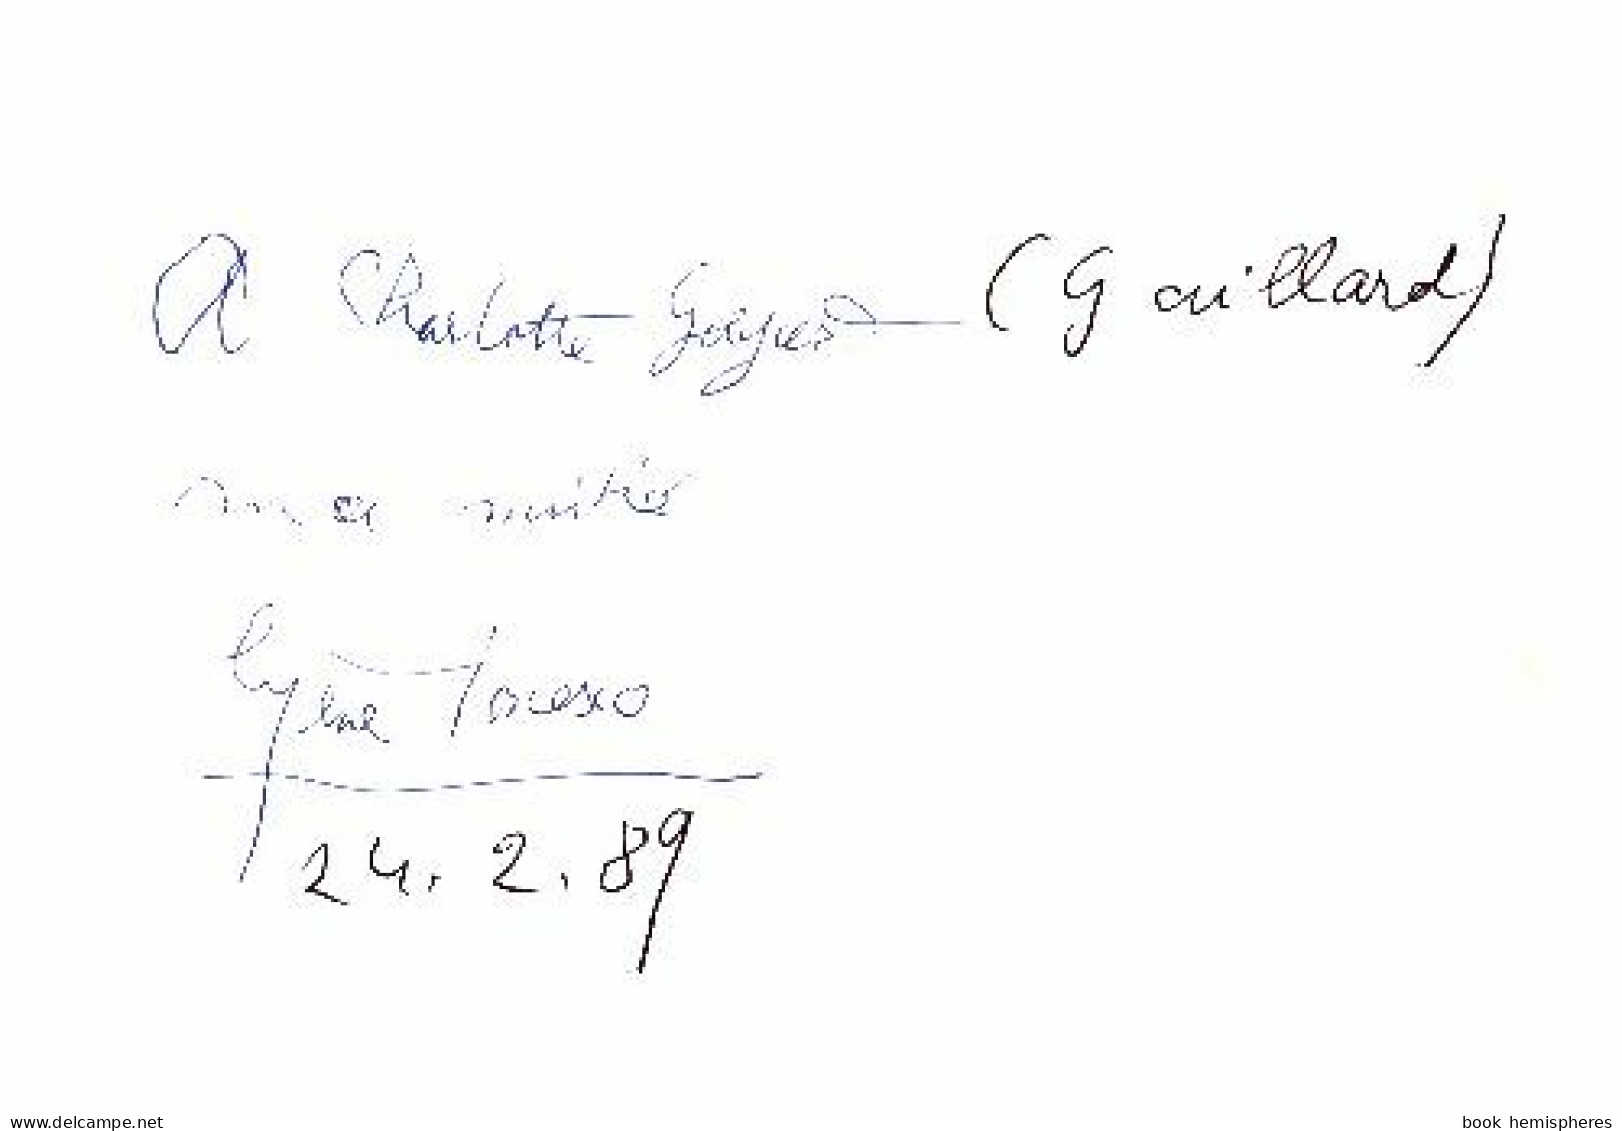 A Charlotte Georges (Gaillard)
mon amitié
Eugène Ionesco
24.2.89
www.delcampe.net
book hemispheres